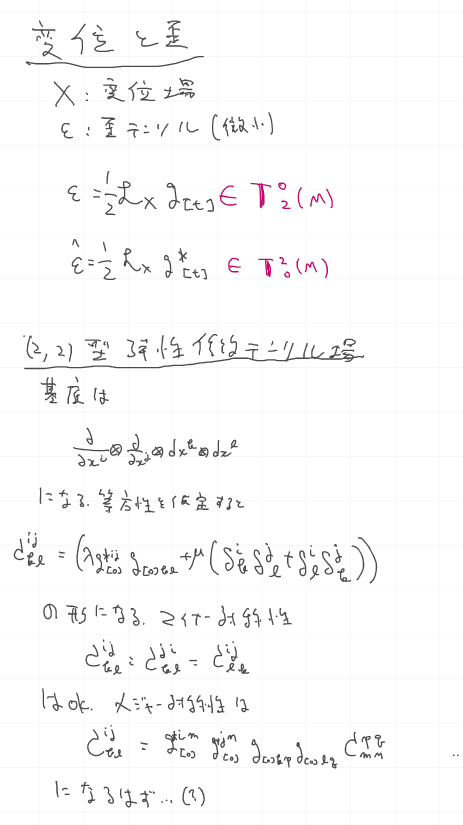 変位と歪
X：変位場
ε：歪テンソル（微小）
ε = 1/2 ℒ_X g_[t] ∈ T^0_2(M)
ε̂ = 1/2 ℒ_X g^*_[t] ∈ T^2_0(M)
(2,2)型 弾性係数テンソル場
基底は
∂/∂x^i ⊗ ∂/∂x^j ⊗ dx^k ⊗ dx^l
になる. 等方性を仮定すると
C^{ij}_{kl} = (λ g^{*ij}_{[0]} g_{[0]kl} + μ(δ^i_k δ^j_l + δ^i_l δ^j_k))
の形になる. マイナー対称性
C^{ij}_{kl} = C^{ji}_{kl} = C^{ij}_{lk}
はok. メジャー対称性は
C^{ij}_{kl} = g^{*im}_{[0]} g^{*jn}_{[0]} g_{[0]kp} g_{[0]lq} C^{pq}_{mn}
になるはず…(?)